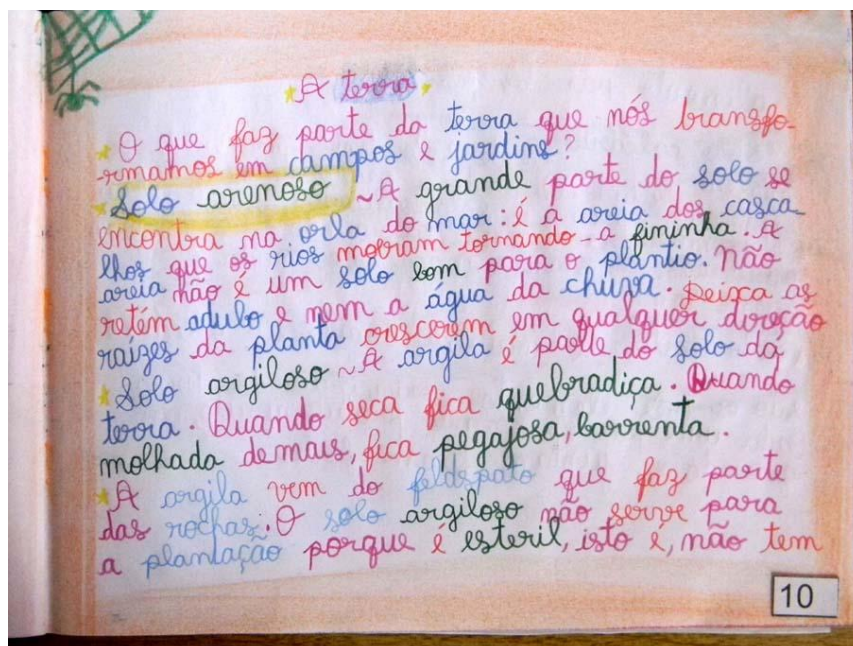 A terra
O que faz parte da terra que nós transfo-
rmamos em campos e jardins?
Solo arenoso ~ A grande parte do solo se
encontra na orla do mar: é a areia dos casca-
lhos que os rios mobram tornando-a fininha. A
areia não é um solo bom para o plantio. Não
retém adubo e nem a água da chuva. Deixa as
raízes da planta crescerem em qualquer direção
Solo argiloso ~ A argila é parte do solo da
terra. Quando seca fica quebradiça. Quando
molhada demais, fica pegajosa, barrenta.
A argila vem do feldespato que faz parte
das rochas. O solo argiloso não serve para
a plantação porque é esteril, isto é, não tem
10